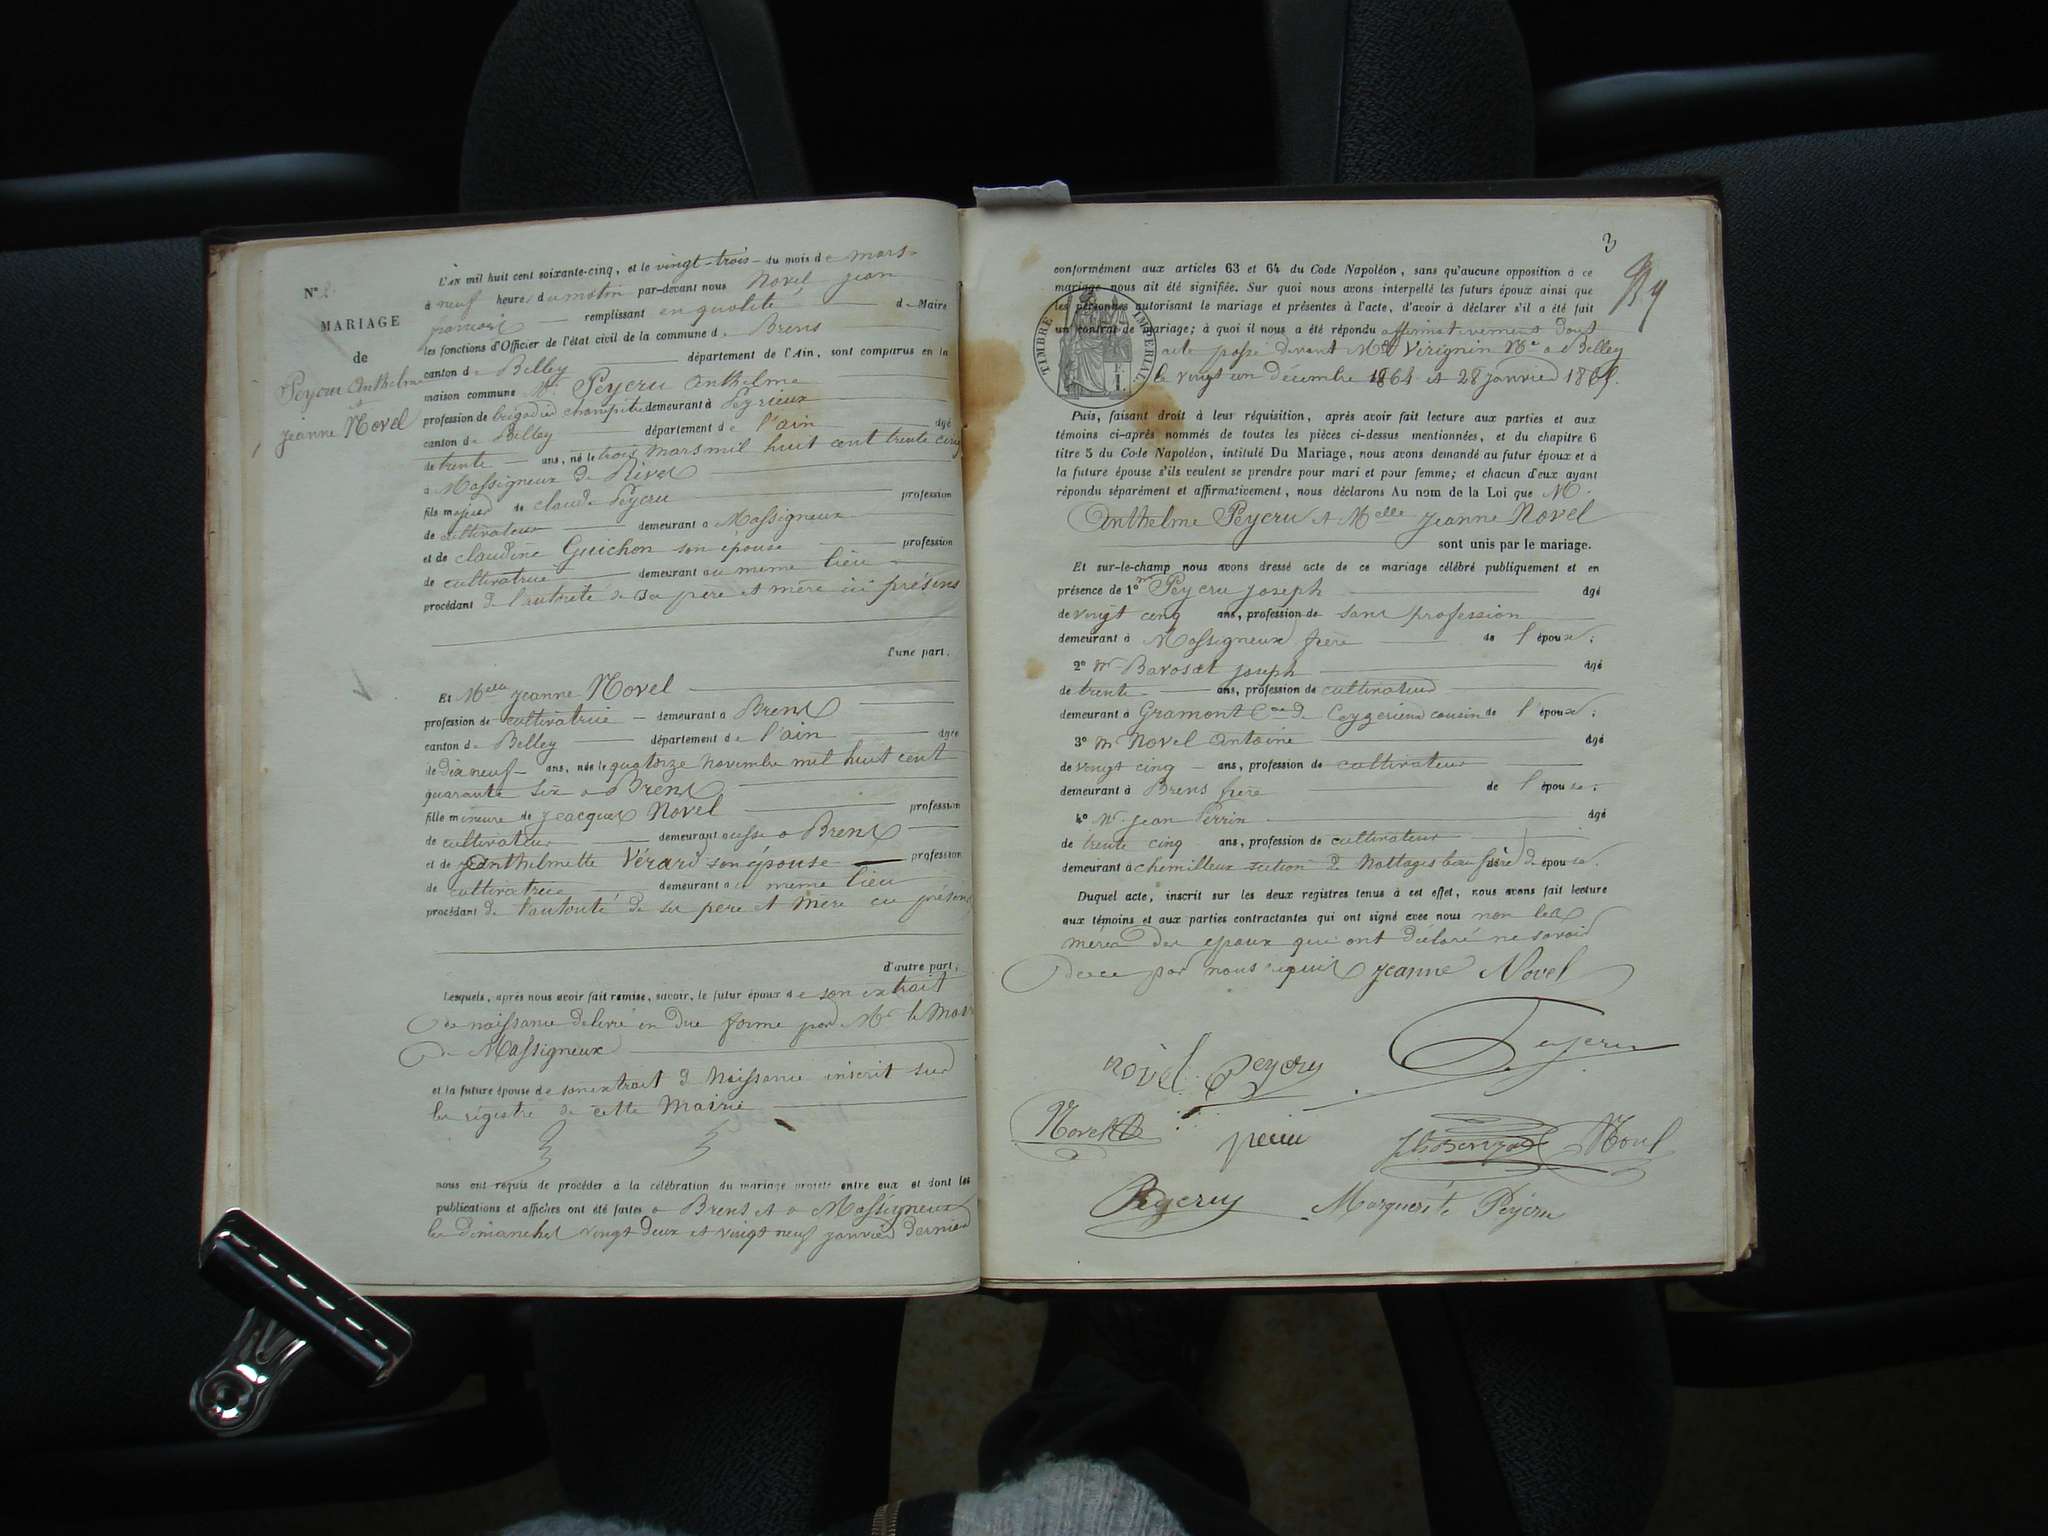 N° 2.
MARIAGE
de
Peycru Anthelme
et
Jeanne Novel
L'AN mil huit cent soixante-cinq, et le vingt-trois du mois de mars
à neuf heures du matin par-devant nous Novel Jean
françois remplissant en qualité de Maire
les fonctions d'Officier de l'état civil de la commune de Brens
canton de Belley département de l'Ain, sont comparus en la
maison commune Mr. Peycru Anthelme
profession de brigadier champêtre demeurant à Peyrieux
canton de Belley département de l'ain âgé
de trente ans, né le trois mars mil huit cent trente cinq
à Massigneux de Rives
fils majeur de claude Peycru profession
de cultivateur demeurant à Massigneux
et de claudine Guichon son épouse profession
de cultivatrice demeurant au même lieu
procédant de l'autorité de ses père et mère ici présens
d'une part.
Et Melle Jeanne Novel
profession de cultivatrice demeurant à Brens
canton de Belley département de l'ain âgée
de dix neuf ans, née le quatorze novembre mil huit cent
quarante six à Brens
fille mineure de Jeacques Novel profession
de cultivateur demeurant aussi à Brens
et de Anthelmette Vérard son épouse profession
de cultivatrice demeurant au même lieu
procédant de l'autorité de ses père et mère ici présens
d'autre part;
Lesquels, après nous avoir fait remise, savoir, le futur époux de son extrait
de naissance délivré en due forme par Mr le Maire
de Massigneux
et la future épouse de son extrait de Naissance inscrit sur
les régistre de cette Mairie
nous ont requis de procéder à la célébration du mariage projeté entre eux et dont les
publications et affiches ont été faites à Brens et à Massigneux
les dimanches vingt deux et vingt neuf janvier dernier
3
conformément aux articles 63 et 64 du Code Napoléon, sans qu'aucune opposition à ce
mariage nous ait été signifiée. Sur quoi nous avons interpellé les futurs époux ainsi que
les personnes autorisant le mariage et présentes à l'acte, d'avoir à déclarer s'il a été fait
un contrat de mariage; à quoi il nous a été répondu affirmativement dont
acte passé devant Me Virignin Nre à Belley
le vingt un décembre 1864 et 28 janvier 1865.
TIMBRE IMPERIAL
F.
1.
Puis, faisant droit à leur réquisition, après avoir fait lecture aux parties et aux
témoins ci-après nommés de toutes les pièces ci-dessus mentionnées, et du chapitre 6
titre 5 du Code Napoléon, intitulé Du Mariage, nous avons demandé au futur époux et à
la future épouse s'ils veulent se prendre pour mari et pour femme; et chacun d'eux ayant
répondu séparément et affirmativement, nous déclarons Au nom de la Loi que M.
Anthelme Peycru et Melle Jeanne Novel
sont unis par le mariage.
Et sur-le-champ nous avons dressé acte de ce mariage célébré publiquement et en
présence de 1° mr Peycru Joseph âgé
de vingt cinq ans, profession de sans profession
demeurant à Massigneux frère de l'époux;
2° mr Barosat Joseph âgé
de trente ans, profession de cultivateur
demeurant à Gramont Cne de Ceyzerieux cousin de l'époux;
3° mr Novel Antoine âgé
de vingt cinq ans, profession de cultivateur
demeurant à Brens frère de l'épouse;
4° mr Jean Perrin âgé
de trente cinq ans, profession de cultivateur
demeurant à chemilleux section de Nattages beau frère de épouse.
Duquel acte, inscrit sur les deux registres tenus à cet effet, nous avons fait lecture
aux témoins et aux parties contractantes qui ont signé avec nous non les
mères des epoux qui ont déclaré ne savoir
de ce par nous requis Jeanne Novel
novel Peycru Peycru
Novel perrin Novel
Peycru Marguerite Peycru